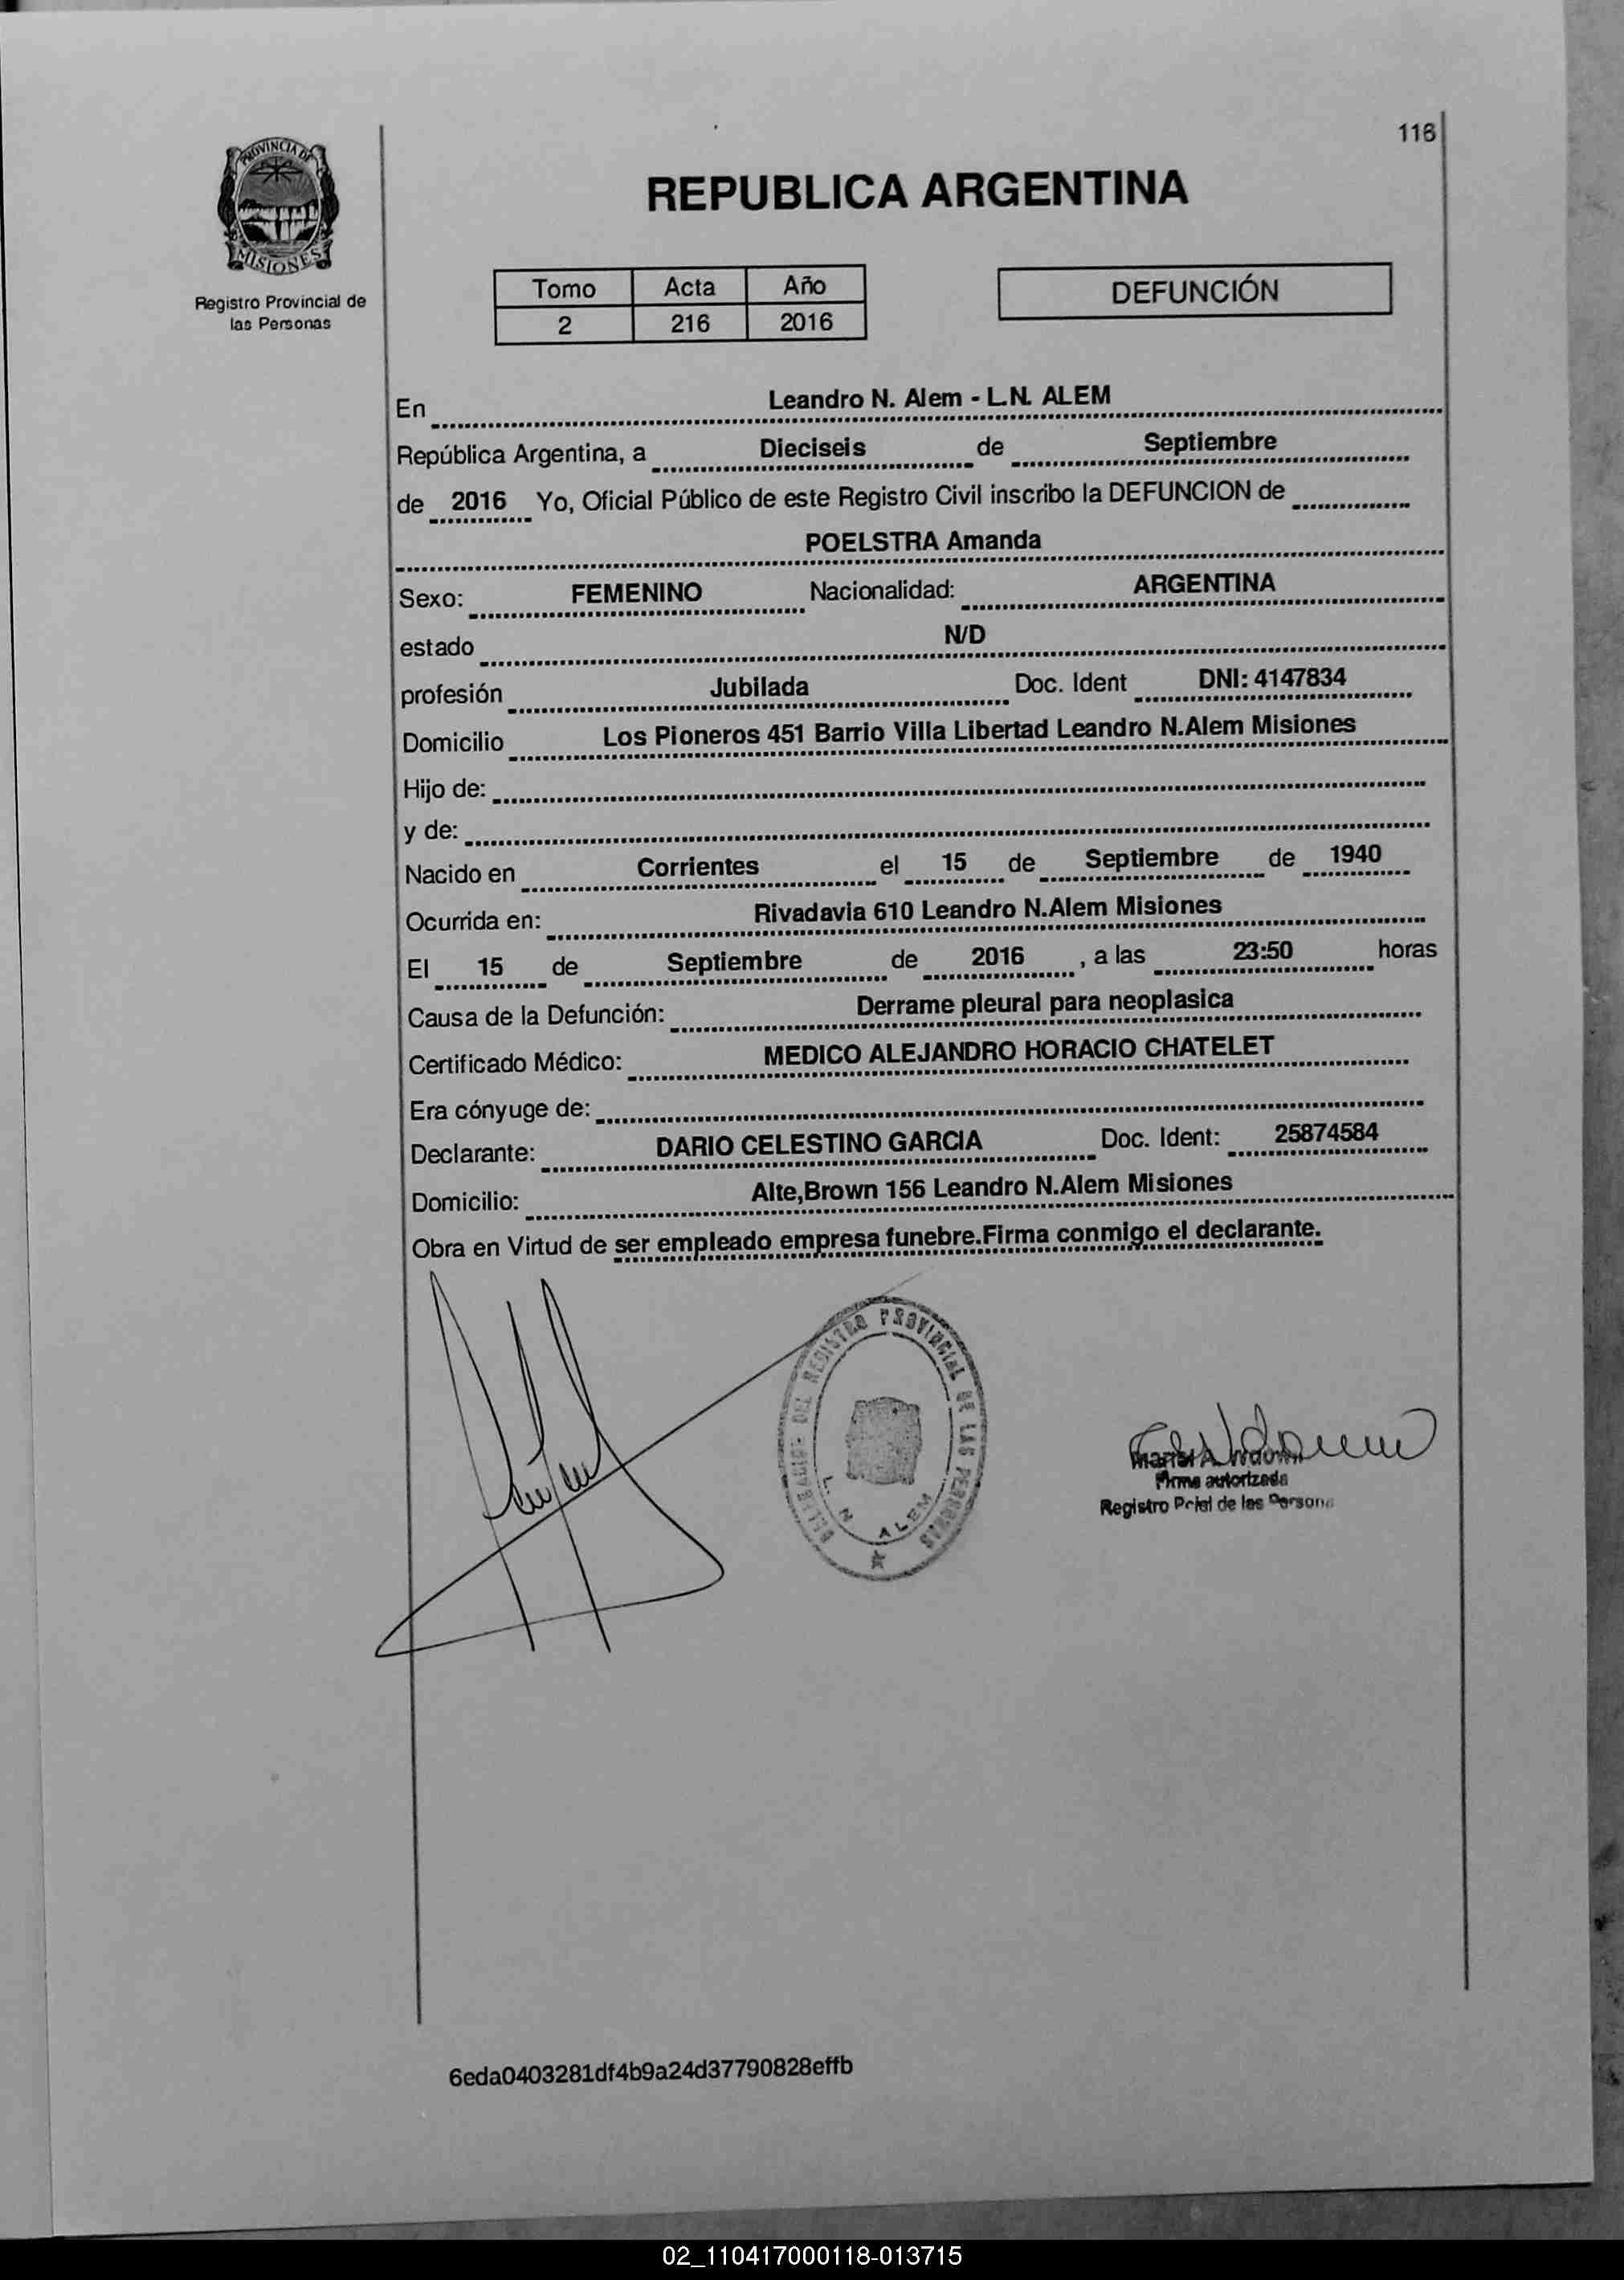 116
PROVINCIA DE
MISIONES
Registro Provincial de
las Personas
REPUBLICA ARGENTINA
Tomo Acta Año
2 216 2016
DEFUNCIÓN
En Leandro N. Alem - L.N. ALEM
República Argentina, a Dieciseis de Septiembre
de 2016 Yo, Oficial Público de este Registro Civil inscribo la DEFUNCION de
POELSTRA Amanda
Sexo: FEMENINO Nacionalidad: ARGENTINA
estado N/D
profesión Jubilada Doc. Ident DNI: 4147834
Domicilio Los Pioneros 451 Barrio Villa Libertad Leandro N.Alem Misiones
Hijo de:
y de:
Nacido en Corrientes el 15 de Septiembre de 1940
Ocurrida en: Rivadavia 610 Leandro N.Alem Misiones
El 15 de Septiembre de 2016 , a las 23:50 horas
Causa de la Defunción: Derrame pleural para neoplasica
Certificado Médico: MEDICO ALEJANDRO HORACIO CHATELET
Era cónyuge de:
Declarante: DARIO CELESTINO GARCIA Doc. Ident: 25874584
Domicilio: Alte,Brown 156 Leandro N.Alem Misiones
Obra en Virtud de ser empleado empresa funebre.Firma conmigo el declarante.
DELEGACION DEL REGISTRO PROVINCIAL DE LAS PERSONAS
L. N. ALEM
Firma autorizada
Registro Pcial de las Persona
6eda0403281df4b9a24d37790828effb
02_110417000118-013715